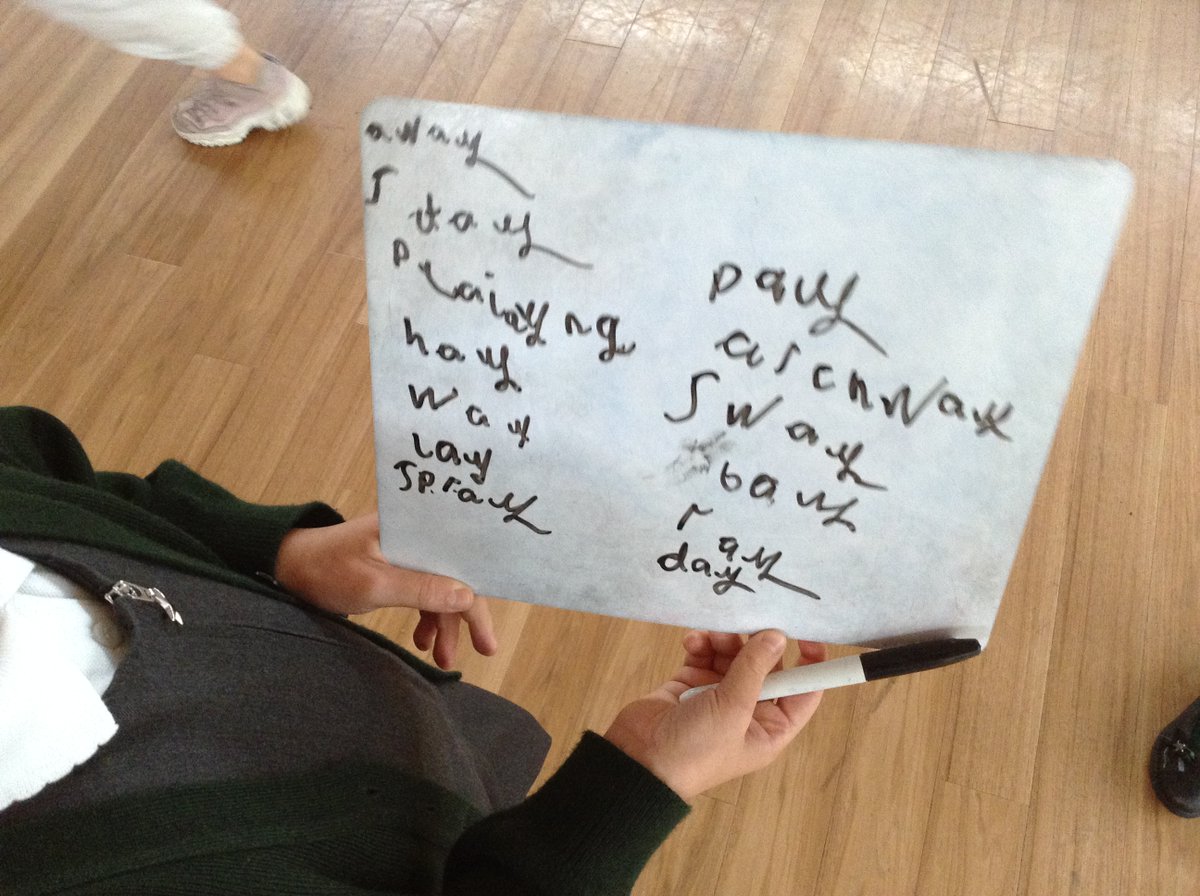 away
stay
plaiayng
hay
way
lay
spray
pay
ascnway
sway
bay
ray
day